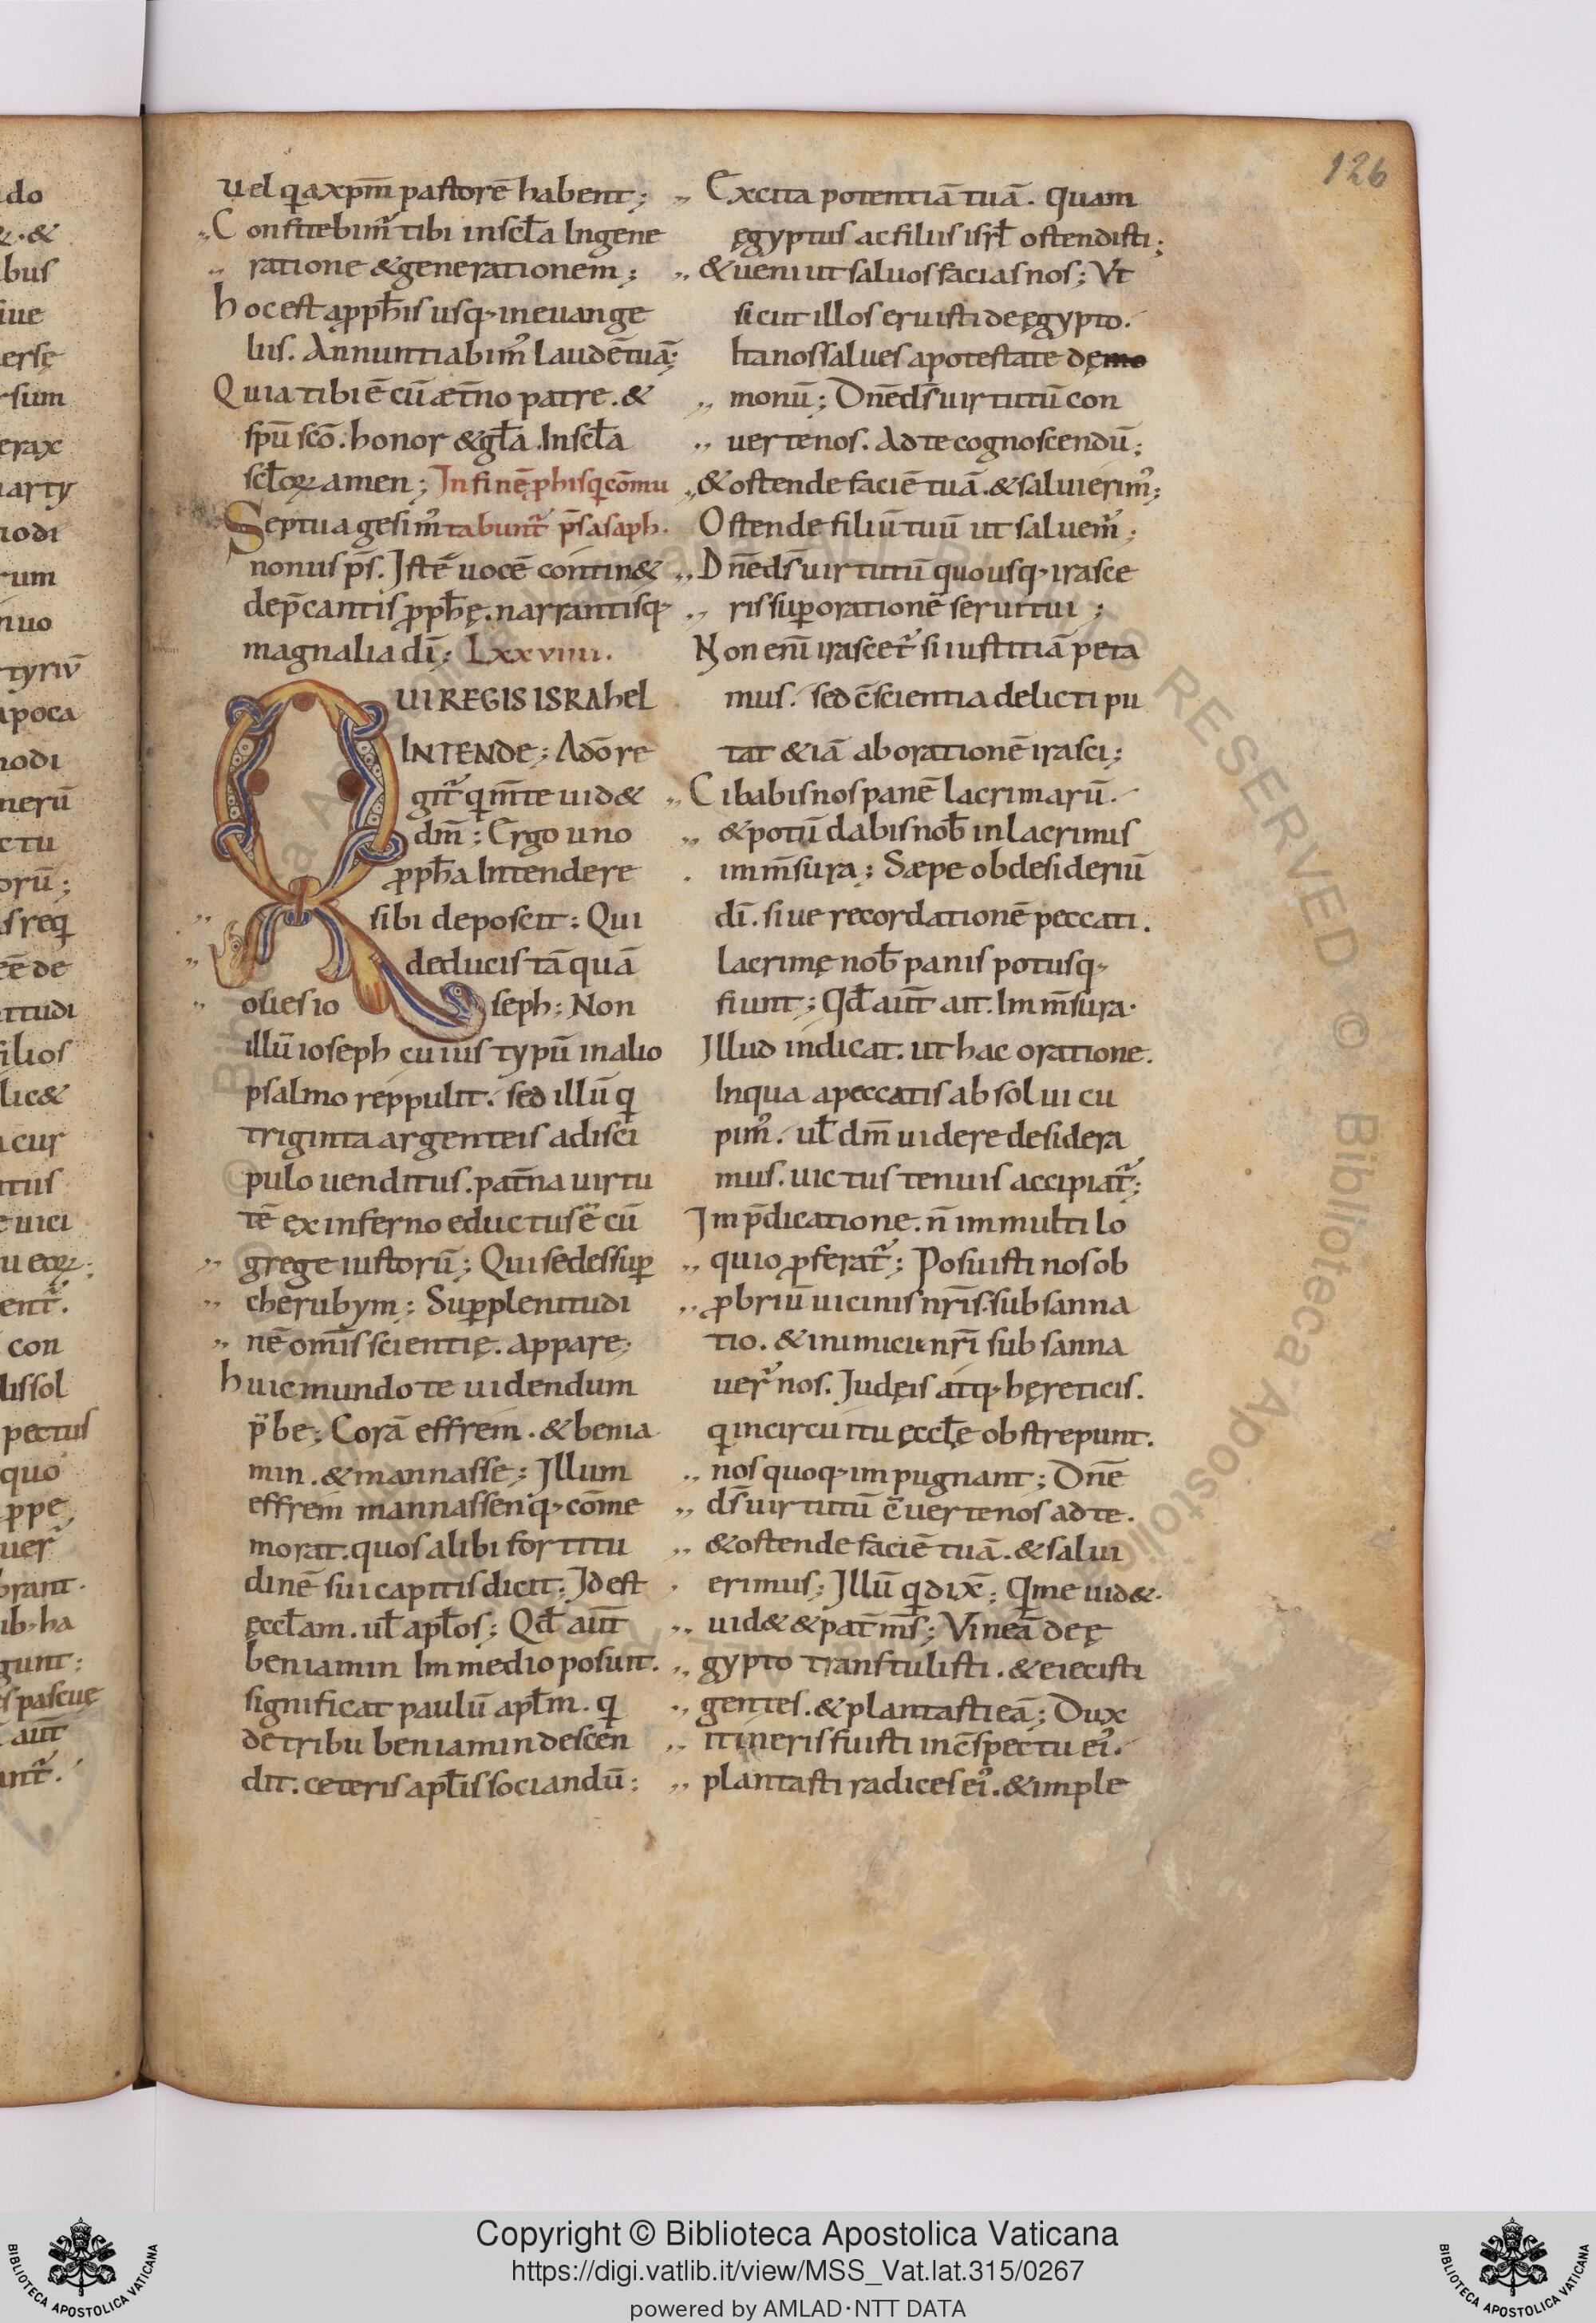 126
uel q̄ a xp̄m pastorē habent;
Confitebim᷒ tibi in sc̄la In gene
ratione & generationem;
hoc est a pp̄his usq; in euange
liis. Annuntiabim᷒ laudē tuā;
Quia tibi ē cū æt̄no patre. &
sp̄u sc̄o. honor & gl̄a. In sc̄la
sc̄loꝝ amen; In finē p̄ his qui cōmu
Septuagesim᷒ tabunt̄ ps̄ asaph.
nonus ps̄. Iste uocē contin&
dep̄cantis pp̄hę. narrantisq;
magnalia dī; Lxxviiii.
QUI REGIS ISRAhel
INTENDE; Ad ōre
git̄ qi m̄te uid&
dm̄; Ergo uno
pp̄ha Intendere
sibi deposcit; Qui
deducis tāquā
oues io seph; Non
illū ioseph cuius typū in alio
psalmo reppulit. sed illū q
triginta argenteis a disci
pulo uenditus. pat̄na uirtu
tē ex inferno eductus ē cū
grege iustorū; Qui sedes sup̄
cherubym; Sup̄ plenitudi
nē om̄is scientię. appare;
huic mundo te uidendum
p̈be; Corā effrem. & benia
min. & mannasse; Illum
effrem mannassenq; cōme
morat. quos alibi fortitu
dinē sui capitis dicit; Id est
ęccl̄am. ul̄ apl̄os; Qd̄ aūt
beniamin In medio posuit.
significat paulū apl̄m. q
de tribu beniamin descen
dit. ceteris apl̄is sociandū;
Excita potentiā tuā. quam
ęgyptus ac filiis isrl̄ ostendisti;
& ueni ut saluos facias nos; Vt
sicut illos eruisti de ęgypto.
ita nos salues a potestate dęmo
monū; Dn̄e ds̄ uirtutū con
uerte nos. Ad te cognoscendū;
& ostende faciē tuā. & salui erim᷒;
Ostende filiū tuū ut saluem᷒;
Dn̄e ds̄ uirtutū quousq; irasce
ris sup̄ orationē serui tui;
Non enī irascet̄ si iustitiā peta
mus. sed c̄scientia delicti pu
tat & iā ab orationē irasci;
Cibabis nos panē lacrimarū.
& potū dabis nob̄ in lacrimis
im m̄sura; Sæpe ob desideriū
dī. siue recordationē peccati.
lacrimę nob̄ panis potusq;
fiunt; Qd̄ aūt ait. Im m̄sura.
Illud indicat. ut hac oratione.
In qua a peccatis absolui cu
pim᷒. ul̄ dm̄ uidere desidera
mus. uictus tenuis accipiat̄;
Im p̄dicatione. n̄ im multi lo
quio p̄ferat̄; Posuisti nos ob
p̄briū uicinis nr̄is. subsanna
tio. & inimici nr̄i subsanna
uer᷒ nos. Judęis atq; hęreticis.
q in circuitu ęccl̄ę obstrepunt.
nos quoq; impugnant; Dn̄e
ds̄ uirtutū c̄uerte nos ad te.
& ostende faciē tuā. & salui
erimus; Illū q dix̄; Qi me uid&.
uid& & pat̄ m̄s; Vineā de ę
gypto transtulisti. & eiecisti
gentes. & plantasti eā; Dux
itineris fuisti in c̄spectu ei᷒.
plantasti radices ei᷒. & imple
Copyright © Biblioteca Apostolica Vaticana
https://digi.vatlib.it/view/MSS_Vat.lat.315/0267
powered by AMLAD·NTT DATA
BIBLIOTECA APOSTOLICA VATICANA
BIBLIOTECA APOSTOLICA VATICANA